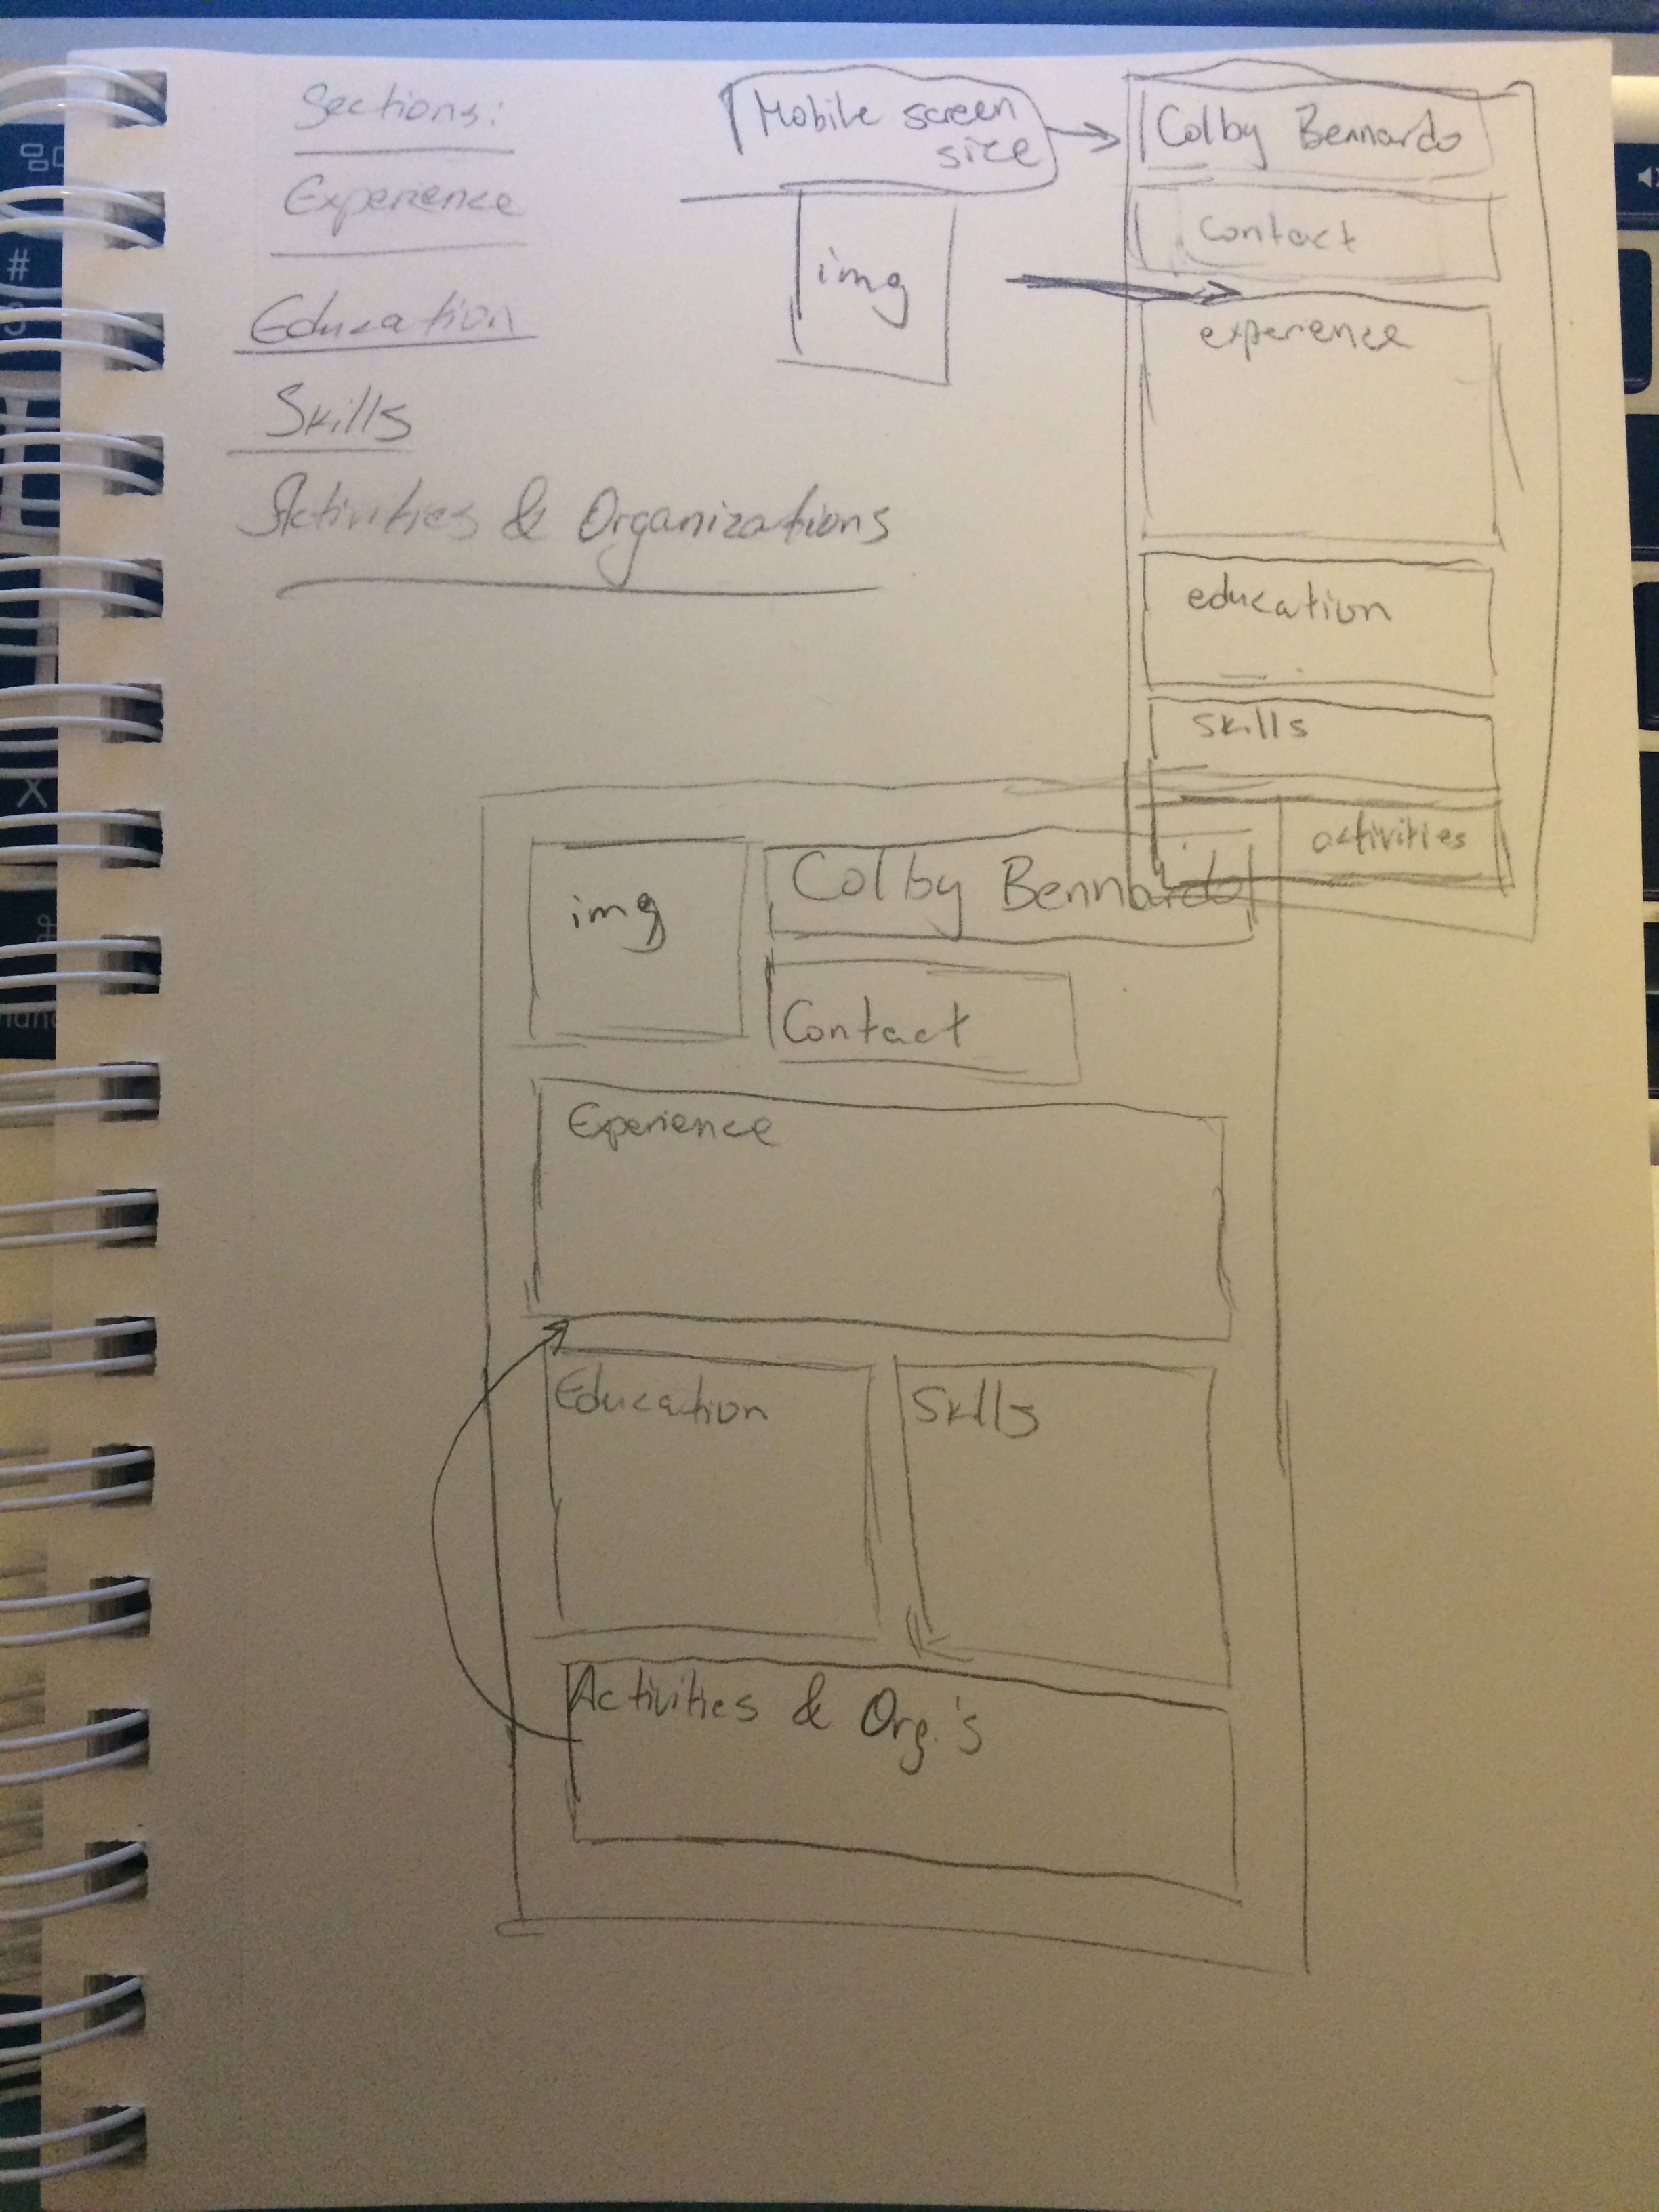 Sections:
Experience
Education
Skills
Activities & Organizations
Mobile screen
size
img
Colby Bennardo
Contact
experience
education
skills
activities
img
Colby Bennardo
Contact
Experience
Education
Skills
Activities & Org.'s
#
X